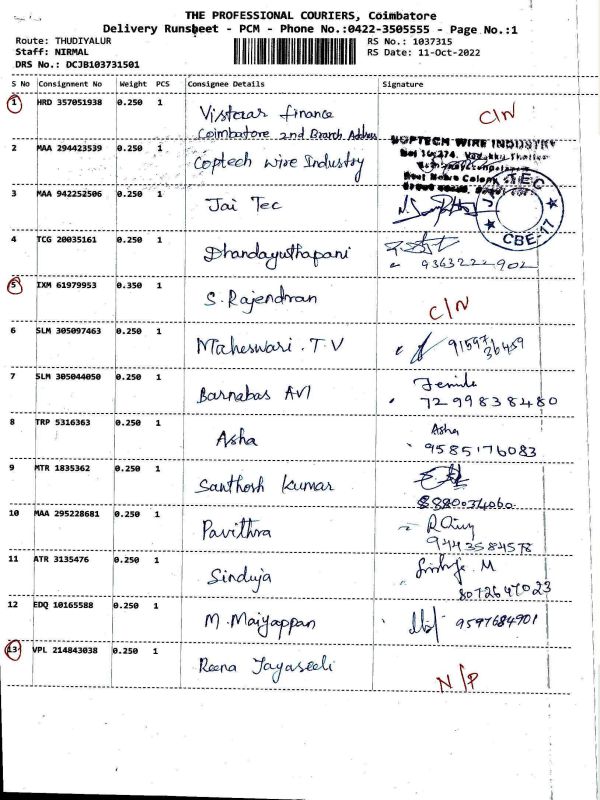 THE PROFESSIONAL COURIERS, Coimbatore
Delivery Runsheet - PCM - Phone No.:0422-3505555 - Page No.:1
Route: THUDIYALUR
Staff: NIRMAL
DRS No.: DCJB103731501
RS No.: 1037315
RS Date: 11-Oct-2022
S No Consignment No Weight PCS Consignee Details Signature
1 HRD 357051938 0.250 1 Vistaar finance C/N
Coimbatore 2nd Branch Address
2 MAA 294423539 0.250 1 Coptech wire Industry
COPTECH WIRE INDUSTRY
3 MAA 942252506 0.250 1 Jai Tec
JAI TEC
CBE-17
4 TCG 20035161 0.250 1 Dhandayuthapani
9363222902
5 IXM 61979953 0.350 1 S. Rajendran C/N
6 SLM 305097463 0.250 1 Maheswari . T.V
91597
36459
7 SLM 305044050 0.250 1 Barnabas AVI
7299838480
8 TRP 5316363 0.250 1 Asha Asha
9585176083
9 MTR 1835362 0.250 1 Santhosh Kumar
8880034060
10 MAA 295228681 0.250 1 Pavithra
9443584578
11 ATR 3135476 0.250 1 Sinduja
8072647023
12 EDQ 10165588 0.250 1 M. Maiyappan 9597684901
13 VPL 214843038 0.250 1 Reena Jayaseeli N/P